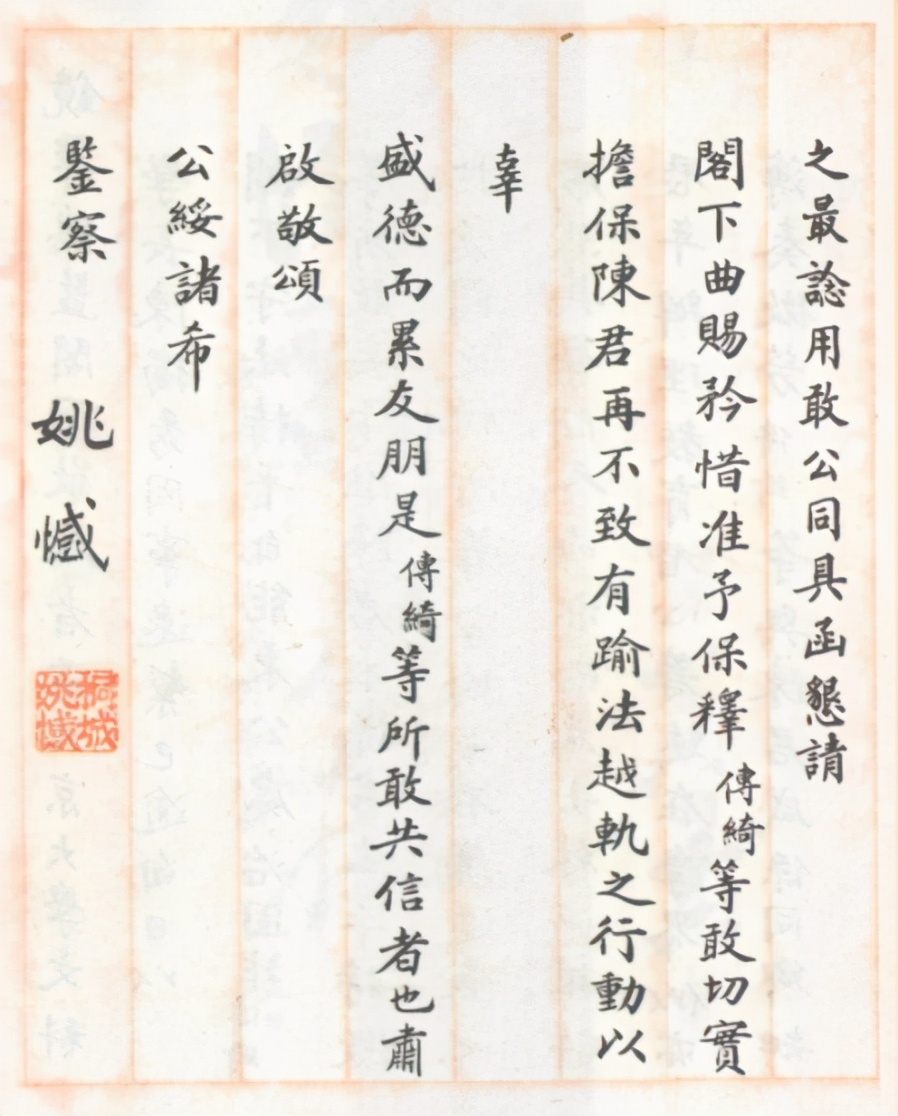 之最諗用敢公同具函懇請
閣下曲賜矜惜准予保釋傳綺等敢切實
擔保陳君再不致有踰法越軌之行動以
辜
盛德而累友朋是傳綺等所敢共信者也肅
啟敬頌
公綏諸希
鑒察 姚憾
桐城姚憾